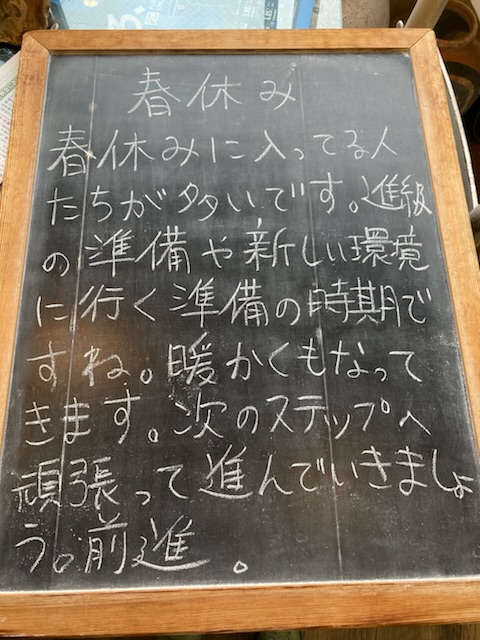 春休み
春休みに入ってる人
たちが多いです。進級
の準備や新しい環境
に行く準備の時期で
すね。暖かくもなって
きます。次のステップへ
頑張って進んでいきましょ
う。前進。